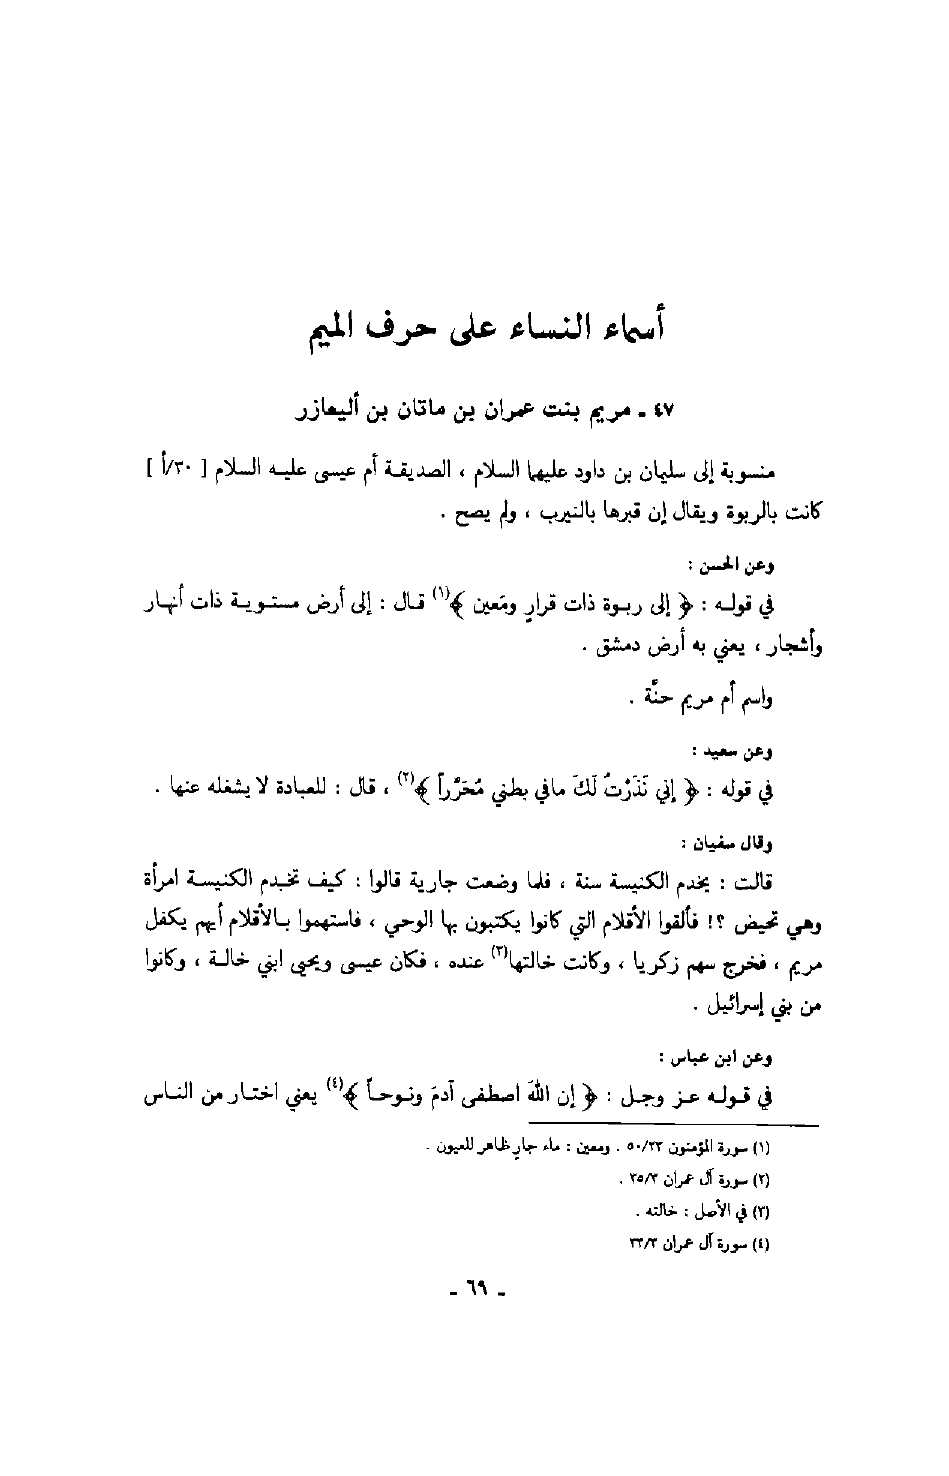 أسماء النساء على حرف الميم
٤٧ ـ مريم بنت عمران بن ماتان بن أليعازر
منسوبة إلى سليمان بن داود عليهما السلام ، الصديقة أم عيسى عليه السلام [ ٣٠/أ ]
كانت بالربوة ويقال إن قبرها بالنيرب ، ولم يصح .
وعن الحسن :
في قوله : ﴿ إلى ربوة ذات قرارٍ ومَعين ﴾(١) قال : إلى أرض مستوية ذات أنهار
وأشجار ، يعني به أرض دمشق .
واسم أم مريم حنَّة .
وعن سعيد :
في قوله : ﴿ إني نَذَرْتُ لَكَ مافي بطني مُحَرَّراً ﴾(٢) ، قال : للعبادة لا يشغله عنها .
وقال سفيان :
قالت : يخدم الكنيسة سنة ، فلما وضعت جارية قالوا : كيف تخدم الكنيسة امرأة
وهي تحيض ؟! فألقوا الأقلام التي كانوا يكتبون بها الوحي ، فاستهموا بالأقلام أيهم يكفل
مريم ، فخرج سهم زكريا ، وكانت خالتها(٣) عنده ، فكان عيسى ويحيى ابني خالة ، وكانوا
من بني إسرائيل .
وعن ابن عباس :
في قوله عز وجل : ﴿ إن اللهَ اصطفى آدمَ ونوحاً ﴾(٤) يعني اختار من الناس
(١) سورة المؤمنون ٥٠/٢٣ . ومعين : ماء جارٍ ظاهر للعيون .
(٢) سورة آل عمران ٣٥/٣ .
(٣) في الأصل : خالته .
(٤) سورة آل عمران ٣٣/٣
ـ ٦٩ ـ